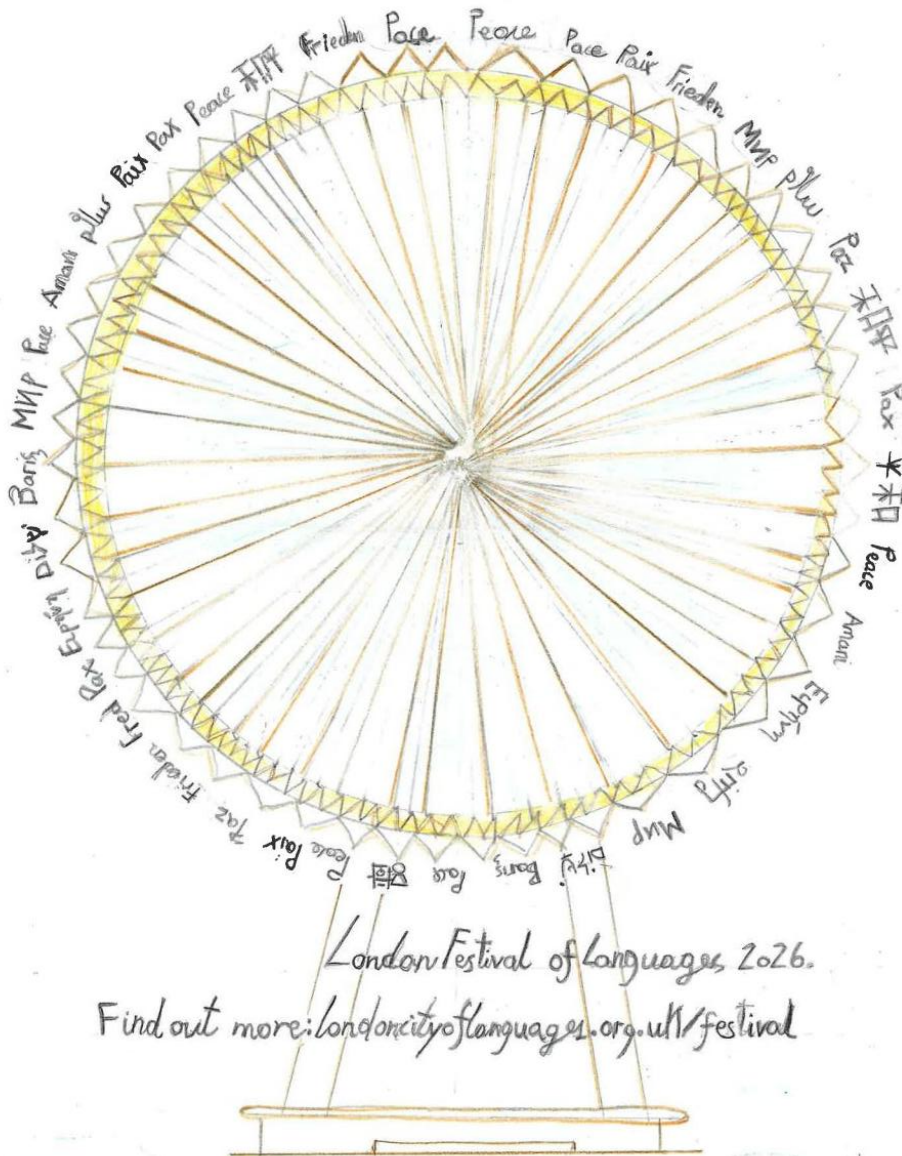 Peace
Pace
Paix
Frieden
МИР
Paz
和平
Pax
平和
Peace
Amani
Ειρήνη
МИР
Barış
Pace
평화
Peace
Paix
Paz
Frieden
Fred
Pax
Ειρήνη
Barış
МИР
Pace
Amani
Paix
Pax
Peace
和平
Frieden
Pace
London Festival of Languages 2026.
Find out more: londoncityoflanguages.org.uk/festival